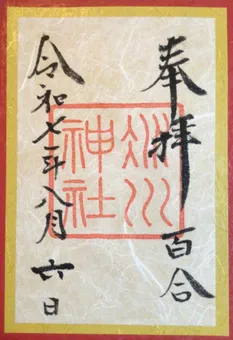 奉拝 百合
川
神社
令和七年八月六日